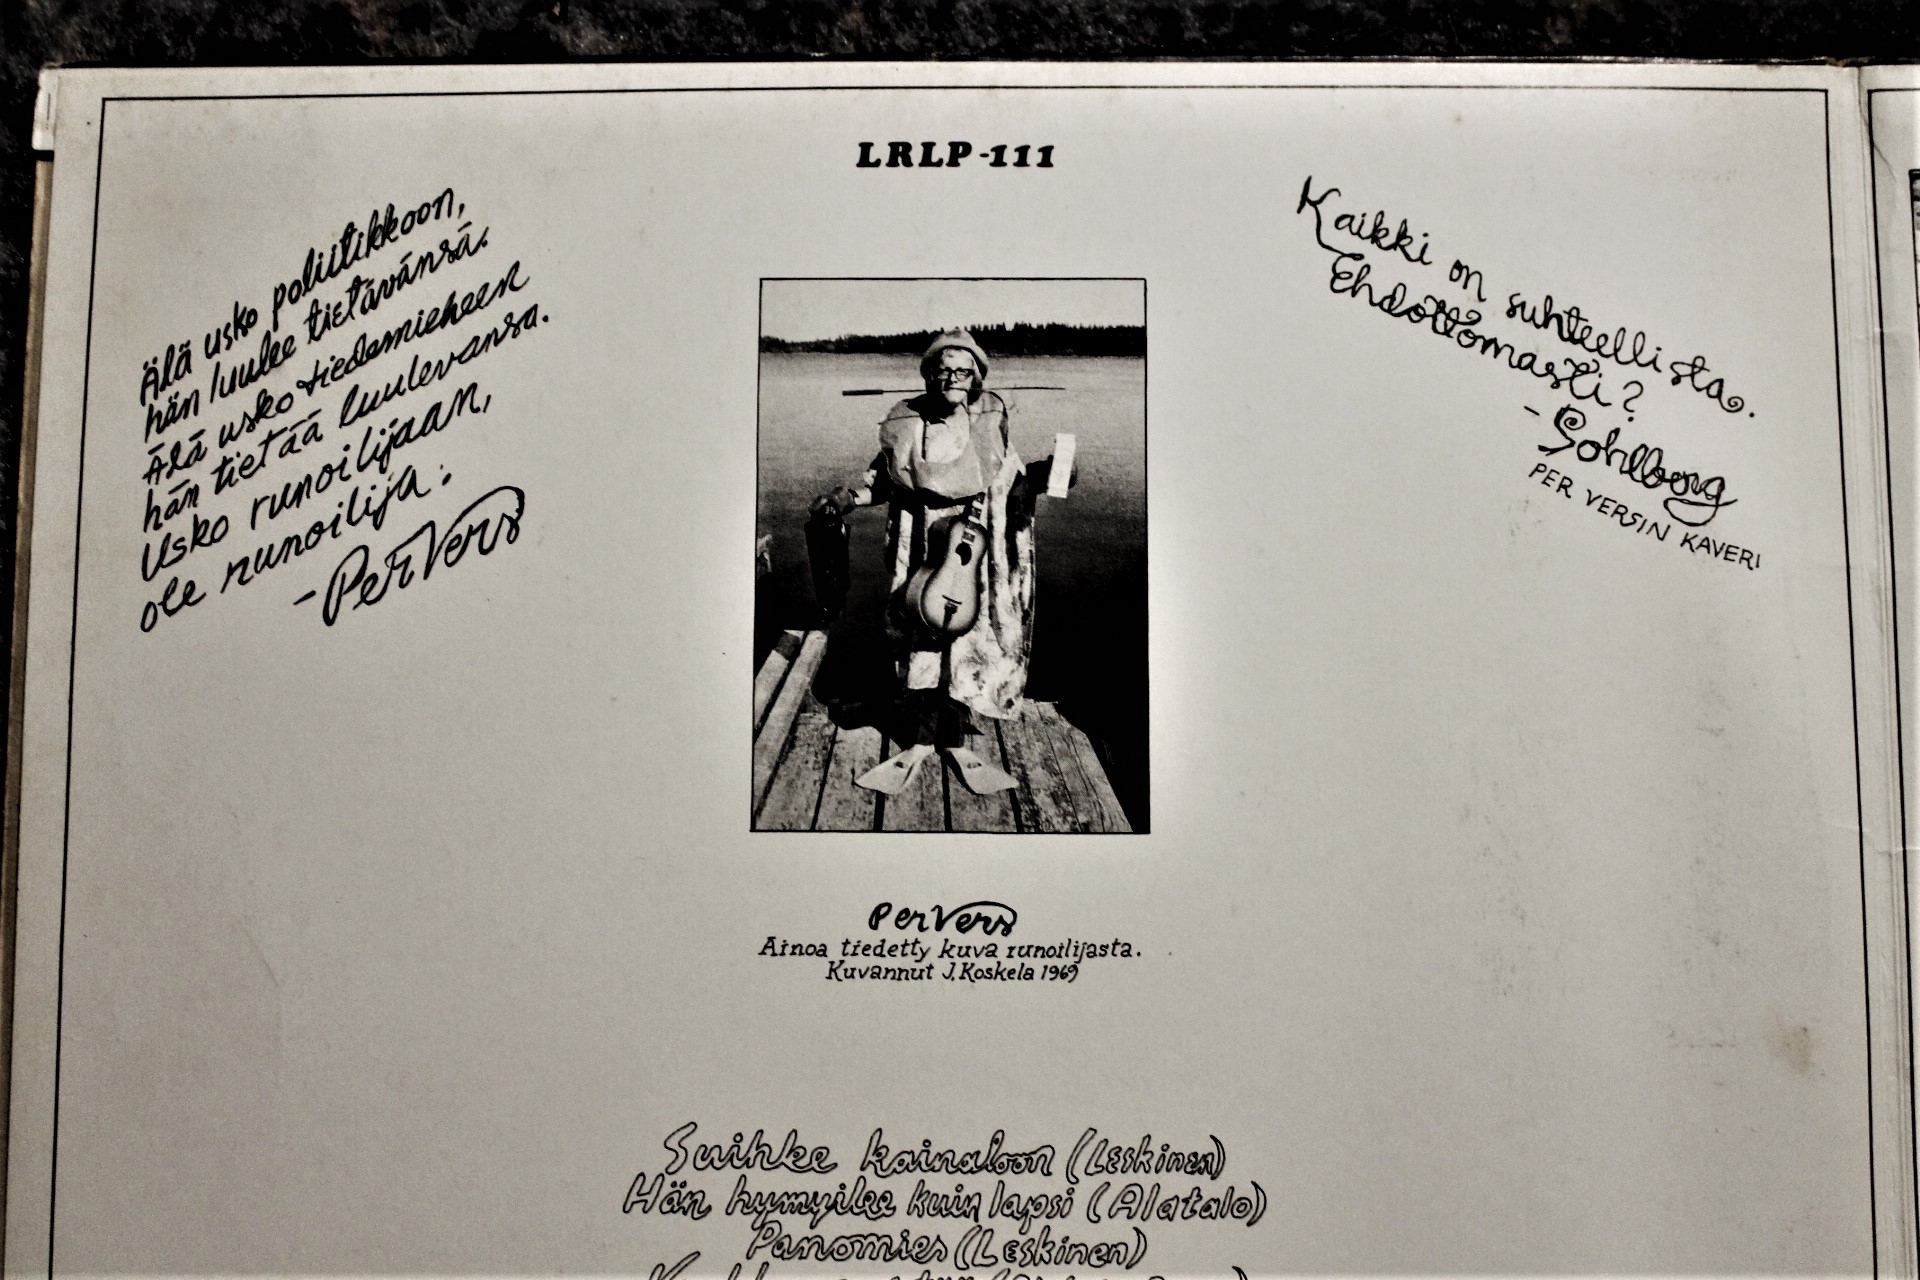 LRLP-111
Älä usko poliitikkoon,
hän luulee tietävänsä.
Älä usko tiedemieheen
hän tietää luulevansa.
Usko runoilijaan,
ole runoilija:
- Per Vers
Kaikki on suhteellista.
Ehdottomasti?
- Sohlborg
PER VERSIN KAVERI
Per Vers
Ainoa tiedetty kuva runoilijasta.
Kuvannut J. Koskela 1969
Suihke kainaloon (Leskinen)
Hän hymyilee kuin lapsi (Alatalo)
Panomies (Leskinen)